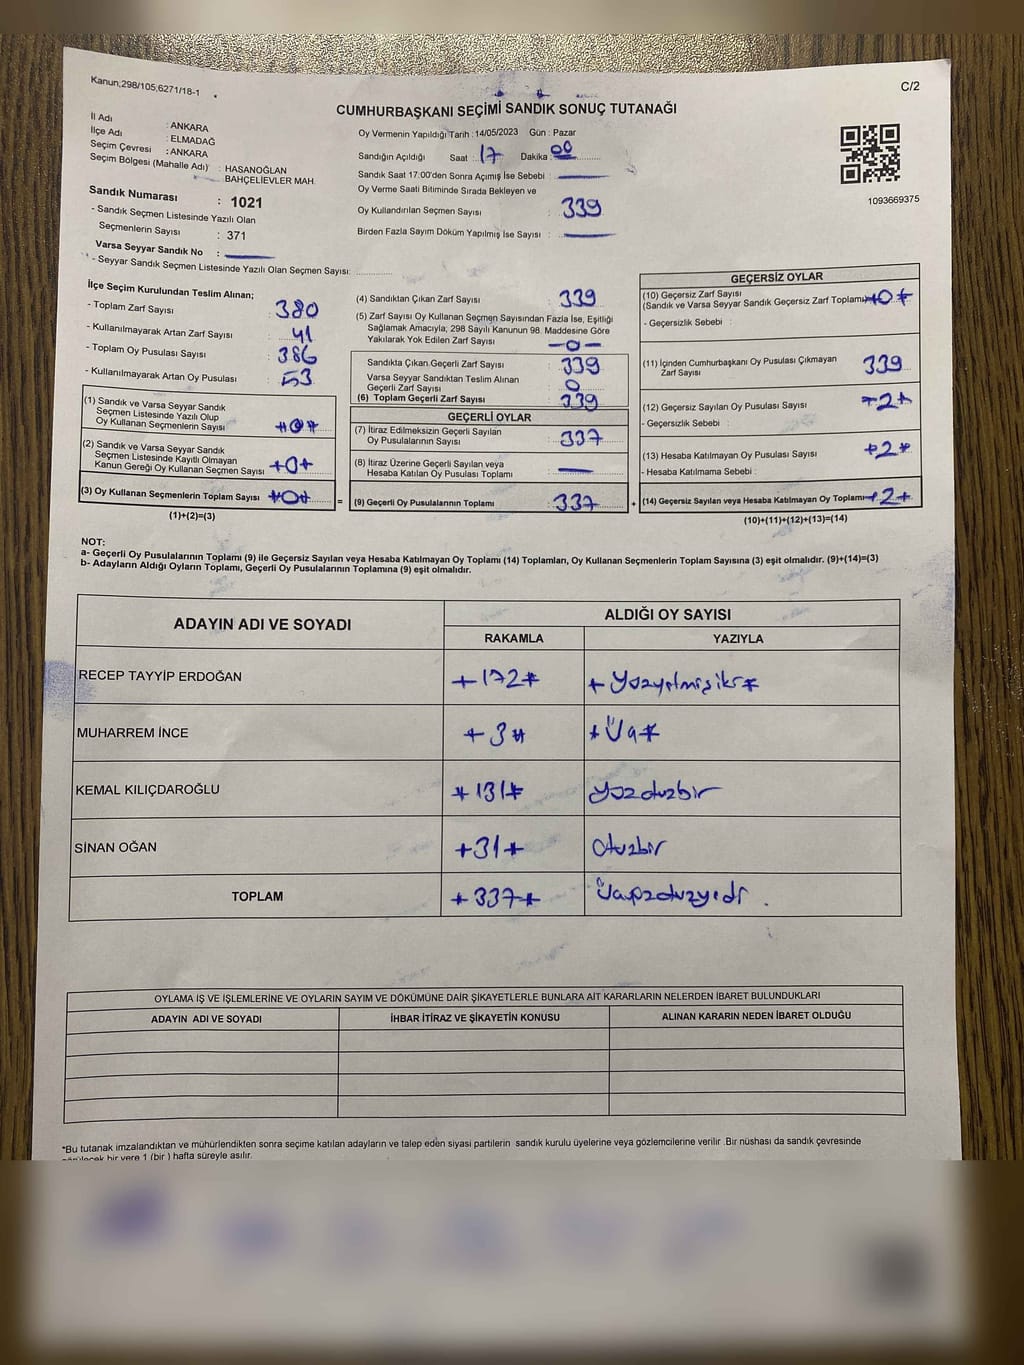 Kanun;298/105,6271/18-1
C/2
CUMHURBAŞKANI SEÇİMİ SANDIK SONUÇ TUTANAĞI
İl Adı : ANKARA
İlçe Adı : ELMADAĞ
Seçim Çevresi : ANKARA
Seçim Bölgesi (Mahalle Adı) : HASANOĞLAN
BAHÇELİEVLER MAH.
Sandık Numarası : 1021
- Sandık Seçmen Listesinde Yazılı Olan
Seçmenlerin Sayısı : 371
Varsa Seyyar Sandık No :
- Seyyar Sandık Seçmen Listesinde Yazılı Olan Seçmen Sayısı:
Oy Vermenin Yapıldığı Tarih : 14/05/2023 Gün : Pazar
Sandığın Açıldığı Saat : 17 Dakika : 00
Sandık Saat 17:00'den Sonra Açımış İse Sebebi :
Oy Verme Saati Bitiminde Sırada Bekleyen ve
Oy Kullandırılan Seçmen Sayısı : 339
Birden Fazla Sayım Döküm Yapılmış İse Sayısı :
1093669375
İlçe Seçim Kurulundan Teslim Alınan;
- Toplam Zarf Sayısı : 380
- Kullanılmayarak Artan Zarf Sayısı : 41
- Toplam Oy Pusulası Sayısı : 386
- Kullanılmayarak Artan Oy Pusulası : 53
(1) Sandık ve Varsa Seyyar Sandık
Seçmen Listesinde Yazılı Olup
Oy Kullanan Seçmenlerin Sayısı *0*
(2) Sandık ve Varsa Seyyar Sandık
Seçmen Listesinde Kayıtlı Olmayan
Kanun Gereği Oy Kullanan Seçmen Sayısı +0+
(3) Oy Kullanan Seçmenlerin Toplam Sayısı *0*
(1)+(2)=(3)
=
(4) Sandıktan Çıkan Zarf Sayısı : 339
(5) Zarf Sayısı Oy Kullanan Seçmen Sayısından Fazla İse, Eşitliği
Sağlamak Amacıyla; 298 Sayılı Kanunun 98. Maddesine Göre
Yakılarak Yok Edilen Zarf Sayısı : -0-
Sandıkta Çıkan Geçerli Zarf Sayısı : 339
Varsa Seyyar Sandıktan Teslim Alınan
Geçerli Zarf Sayısı : 0
(6) Toplam Geçerli Zarf Sayısı : 339
GEÇERLİ OYLAR
(7) İtiraz Edilmeksizin Geçerli Sayılan
Oy Pusulalarının Sayısı : 337
(8) İtiraz Üzerine Geçerli Sayılan veya
Hesaba Katılan Oy Pusulası Toplamı :
(9) Geçerli Oy Pusulalarının Toplamı : 337
+
GEÇERSİZ OYLAR
(10) Geçersiz Zarf Sayısı
(Sandık ve Varsa Seyyar Sandık Geçersiz Zarf Toplamı) *0*
- Geçersizlik Sebebi :
(11) İçinden Cumhurbaşkanı Oy Pusulası Çıkmayan
Zarf Sayısı 339
(12) Geçersiz Sayılan Oy Pusulası Sayısı +2+
- Geçersizlik Sebebi :
(13) Hesaba Katılmayan Oy Pusulası Sayısı +2*
- Hesaba Katılmama Sebebi :
(14) Geçersiz Sayılan veya Hesaba Katılmayan Oy Toplamı +2+
(10)+(11)+(12)+(13)=(14)
NOT:
a- Geçerli Oy Pusulalarının Toplamı (9) ile Geçersiz Sayılan veya Hesaba Katılmayan Oy Toplamı (14) Toplamları, Oy Kullanan Seçmenlerin Toplam Sayısına (3) eşit olmalıdır. (9)+(14)=(3)
b- Adayların Aldığı Oyların Toplamı, Geçerli Oy Pusulalarının Toplamına (9) eşit olmalıdır.
ADAYIN ADI VE SOYADI ALDIĞI OY SAYISI
RAKAMLA YAZIYLA
RECEP TAYYİP ERDOĞAN +172*
MUHARREM İNCE +3*
KEMAL KILIÇDAROĞLU *131* yüzotuzbir
SİNAN OĞAN +31+ Otuzbir
TOPLAM +337*
OYLAMA İŞ VE İŞLEMLERİNE VE OYLARIN SAYIM VE DÖKÜMÜNE DAİR ŞİKAYETLERLE BUNLARA AİT KARARLARIN NELERDEN İBARET BULUNDUKLARI
ADAYIN ADI VE SOYADI İHBAR İTİRAZ VE ŞİKAYETİN KONUSU ALINAN KARARIN NEDEN İBARET OLDUĞU
*Bu tutanak imzalandıktan ve mühürlendikten sonra seçime katılan adayların ve talep eden siyasi partilerin sandık kurulu üyelerine veya gözlemcilerine verilir .Bir nüshası da sandık çevresinde
bir yere 1 (bir ) hafta süreyle asılır.